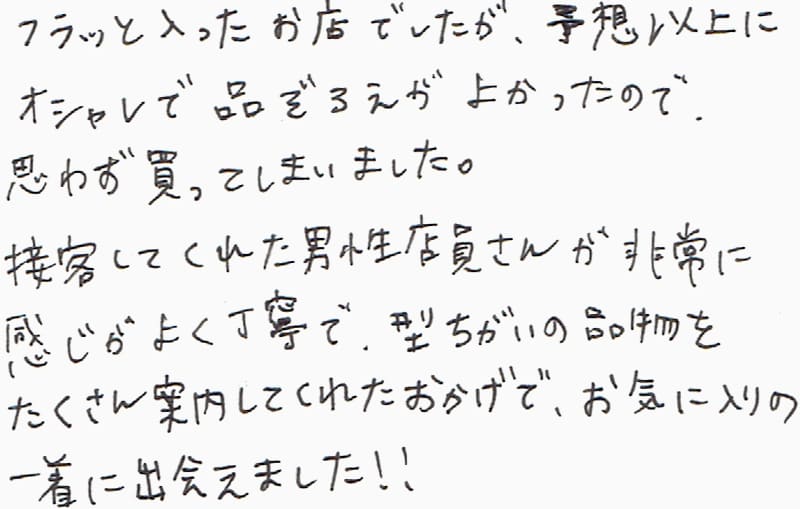 フラッと入ったお店でしたが、予想以上に
オシャレで品ぞろえがよかったので、
思わず買ってしまいました。
接客してくれた男性店員さんが非常に
感じがよく丁寧で、型ちがいの品物を
たくさん案内してくれたおかげで、お気に入りの
一着に出会えました!!